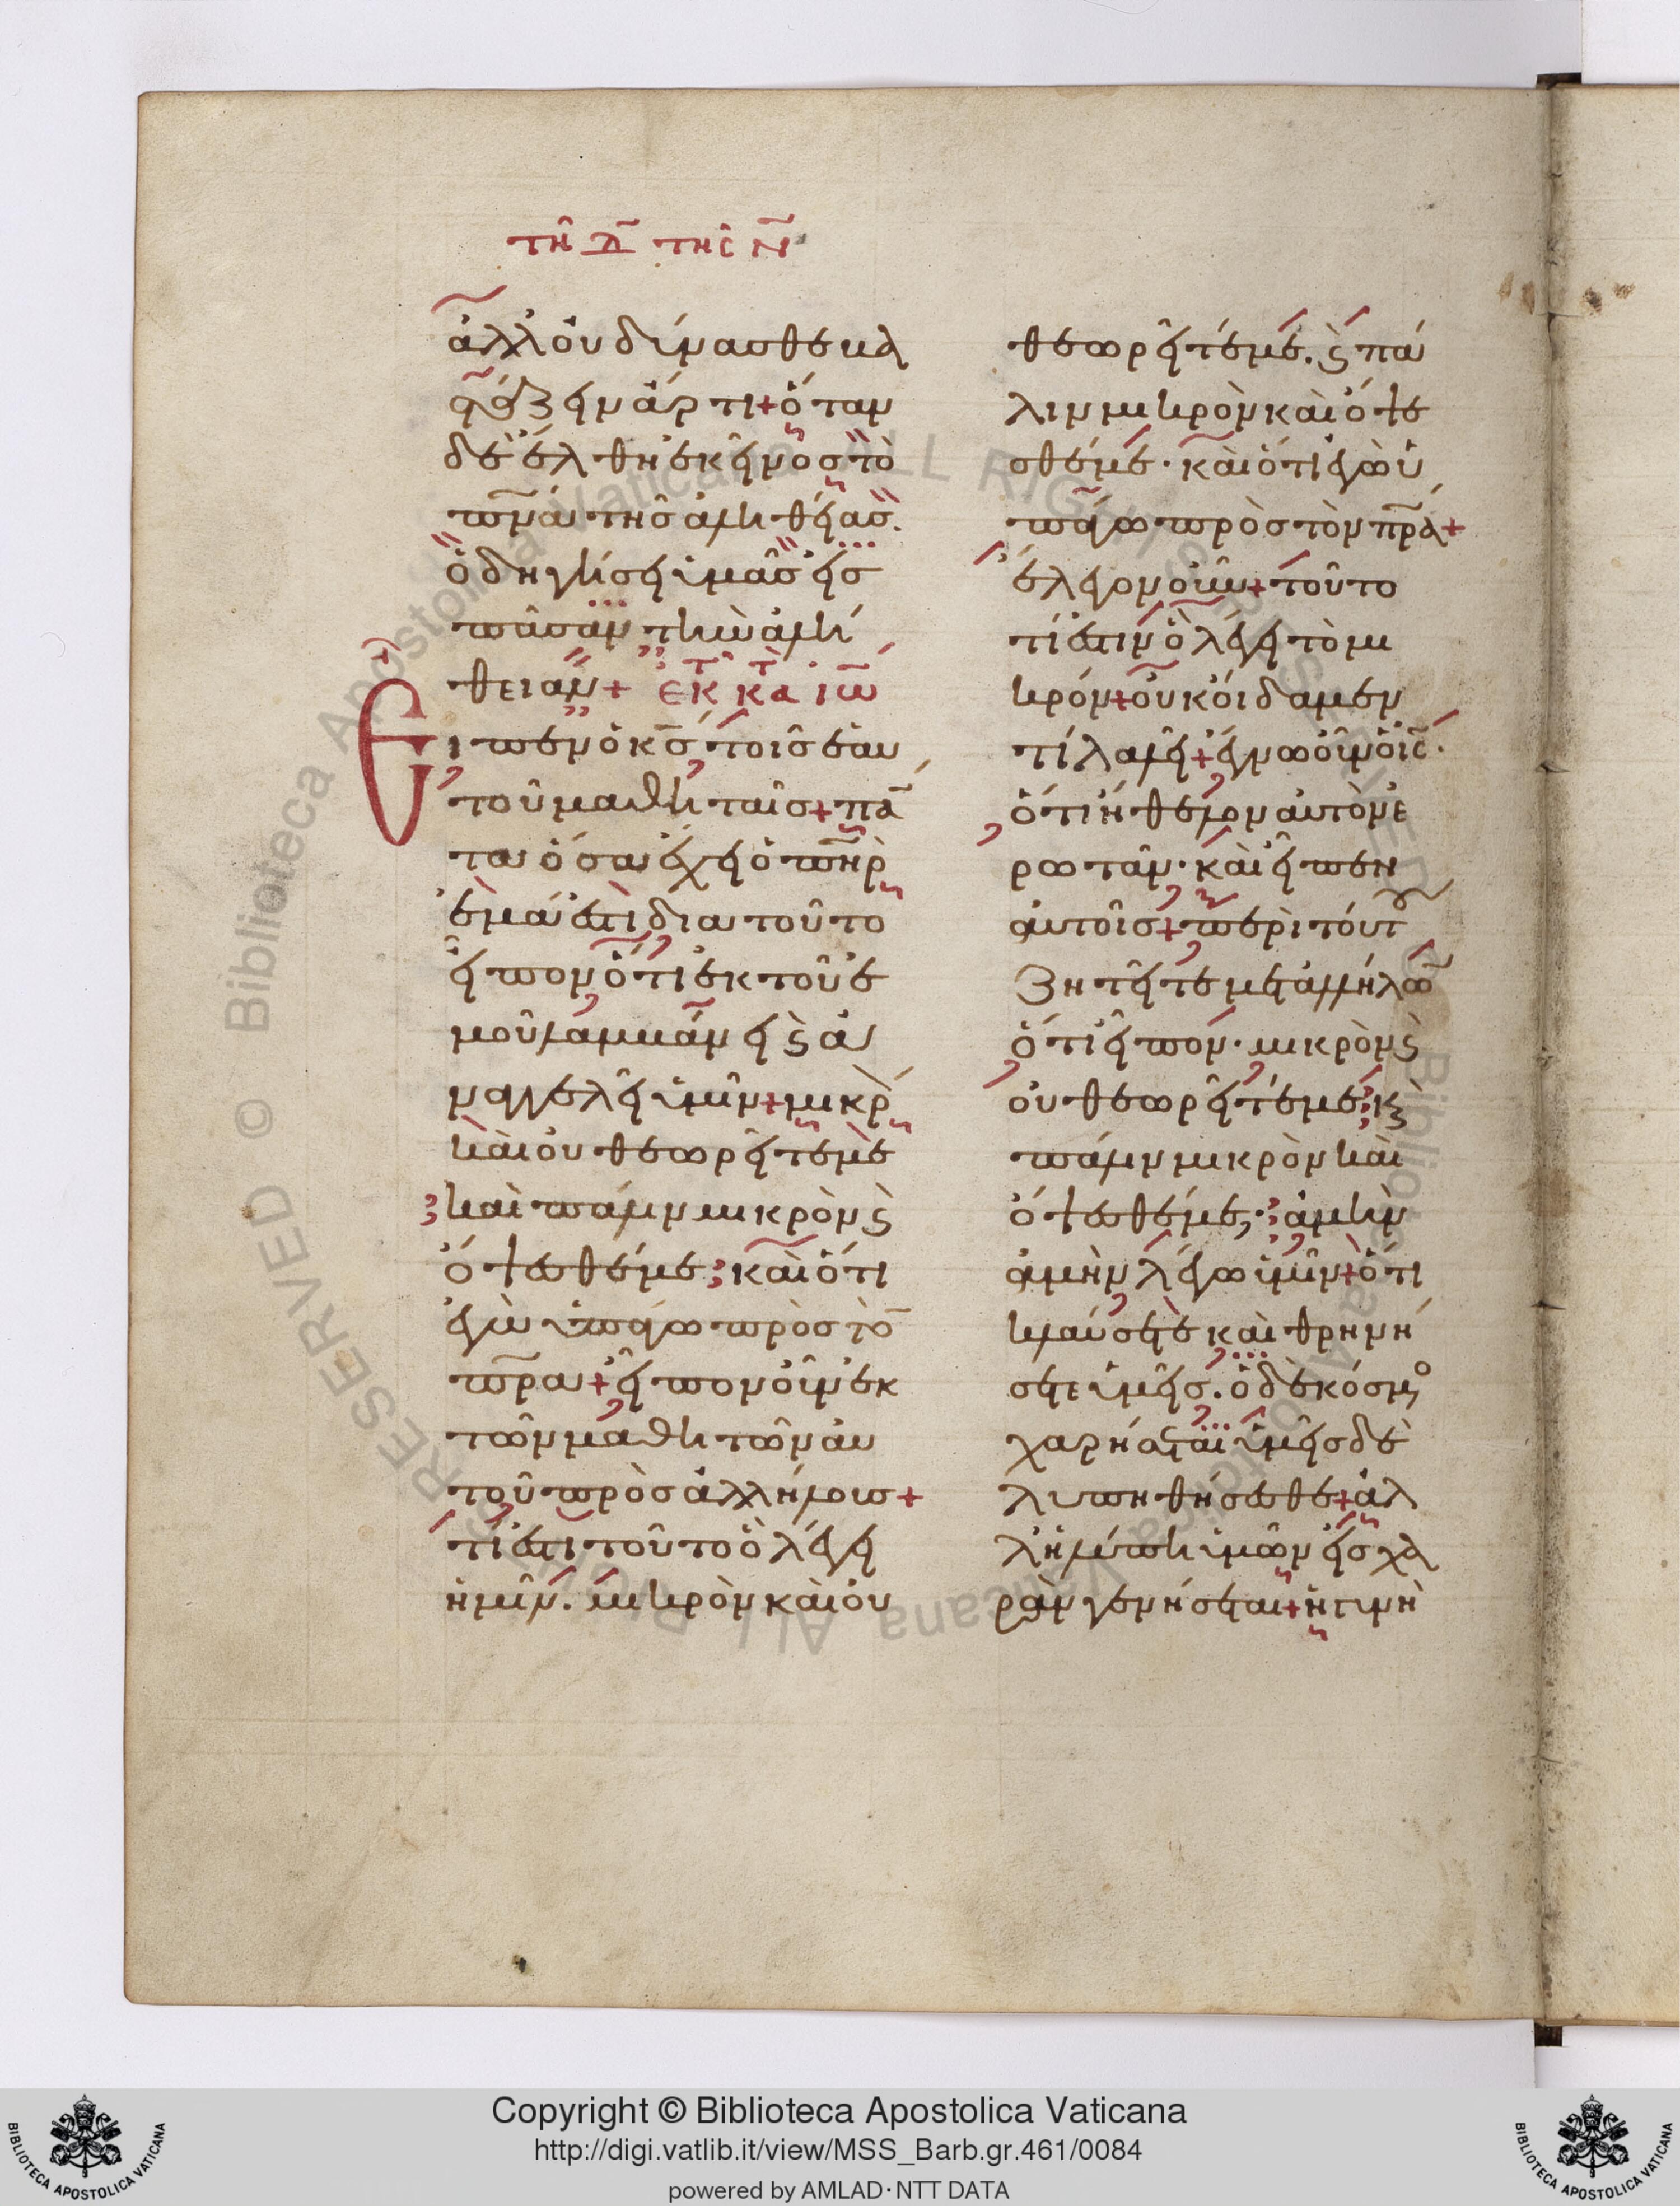 τῆ Δ̅ τῆς Ν̅
ἀλλ' οὐ δύνασθε βα
στάζειν ἄρτι + ὅταν
δὲ ἔλθη ἐκεῖνος τὸ
πν̅α τῆς ἀληθείας.
ὁδηγήσει ὑμᾶς εἰς
πᾶσαν τὴν ἀλή
θειαν + ἐκ τοῦ κατὰ ἰω̅
Εἶπεν ὁ κ̅ς τοῖς ἑαυ
τοῦ μαθηταῖς + πά̅
τα ὅσα ἔχει ὁ π̅η̅ρ
ἐμά ἐστι διὰ τοῦτο
εἶπον ὅτι ἐκ τοῦ ἐ
μοῦ λαμβάνει ϗ ἀ
ναγγελεῖ ὑμῖν + μικρ
καὶ οὐ θεωρεῖτέ με
καὶ πάλιν μικρὸν ϗ
ὄψεσθέ με ; καὶ ὅτι
ἐγὼ ὑπάγω πρὸς τὸ̅
π̅ρ̅α + εἶπον οὖν ἐκ
τῶν μαθητῶν αὐ
τοῦ πρὸς ἀλλήλους +
τί ἐστι τοῦτο ὃ λέγει
ἡμῖν. μικρὸν καὶ οὐ
θεωρεῖτέ με. ϗ πά
λιν μικρὸν καὶ ὄψε
σθέ με · καὶ ὅτι ἐγὼ ὑ
πάγω πρὸς τὸν π̅ρ̅α +
ἔλεγον οὖν + τοῦτο
τί ἐστιν ὃ λέγει τὸ μι
κρόν + οὐκ οἴδαμεν
τί λαλεῖ + ἔγνω οὖν ὁ ἰ̅ς̅ ·
ὅτι ἤθελον αὐτὸν ἐ
ρωτᾶν · καὶ εἶπεν
αὐτοῖς + περὶ τούτου
ζητεῖτε μετ' ἀλλήλω̅
ὅτι εἶπον · μικρὸν ϗ
οὐ θεωρεῖτέ με ; ϗ
πάλιν μικρὸν καὶ
ὄψεσθέ με ; ἀμὴν
ἀμὴν λέγω ὑμῖν + ὅτι
κλαύσετε καὶ θρηνή
σετε ὑμεῖς. ὁ δὲ κόσμο
χαρήσεται ὑμεῖς δὲ
λυπηθήσεσθε + ἀλ
λ' ἡ λύπη ὑμῶν εἰς χα
ρὰν γενήσεται + ἡ γυνὴ
© Biblioteca Apostolica Vaticana ALL RIGHTS RESERVED
Copyright © Biblioteca Apostolica Vaticana
http://digi.vatlib.it/view/MSS_Barb.gr.461/0084
powered by AMLAD·NTT DATA
BIBLIOTECA APOSTOLICA VATICANA
BIBLIOTECA APOSTOLICA VATICANA